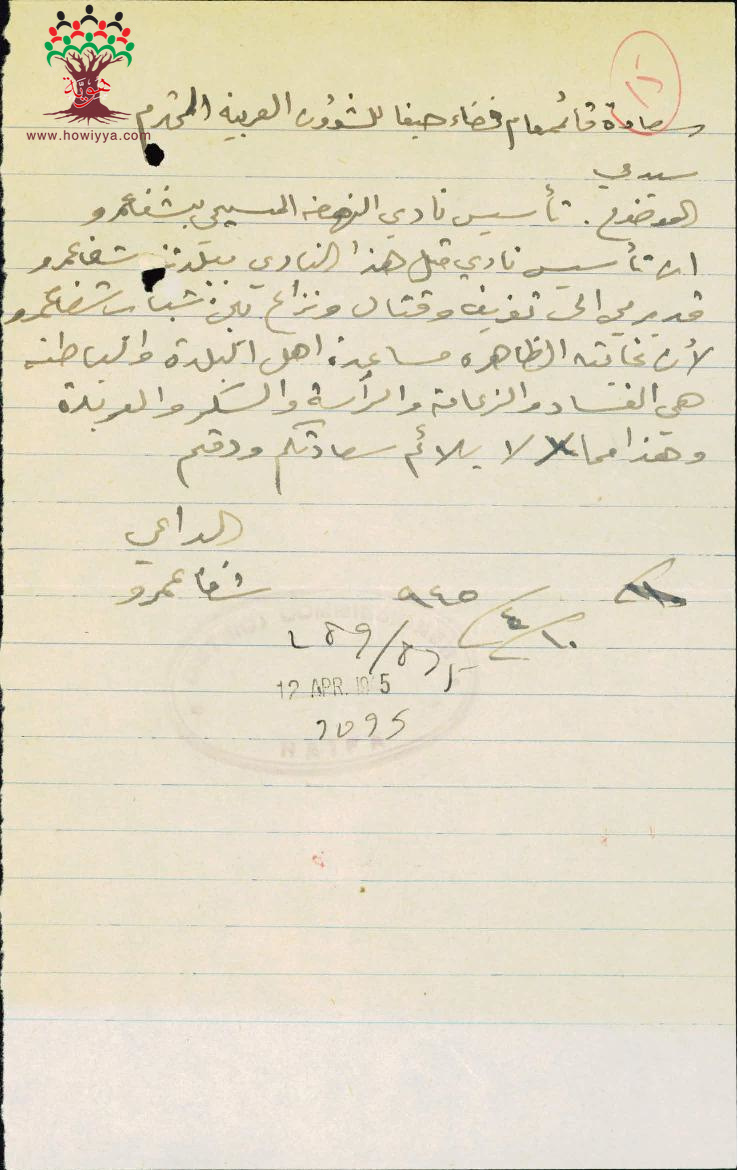 هوية
www.howiyya.com
سعادة قائمقام قضاء حيفا للشؤون العربية المحترم
سيدي
الموضوع. تأسيس نادي النهضه المسيحي بشفاعمرو
ان تأسيس نادي مثل هذا النادي ببلدتنا شفاعمرو
قد يرمي الى تفريق وقتال ونزاع بين شباب شفاعمرو
لأن غايته الظاهره مساعدة اهل البلدة والباطنه
هي الفساد والزعامة والرأسة والسكر والعربدة
وهذا مما لا يلائم سعادتكم ودمتم
الداعي
شفاعمرو
١٠/٤/٩٤٥
12 APR. 19 5
HAIFA